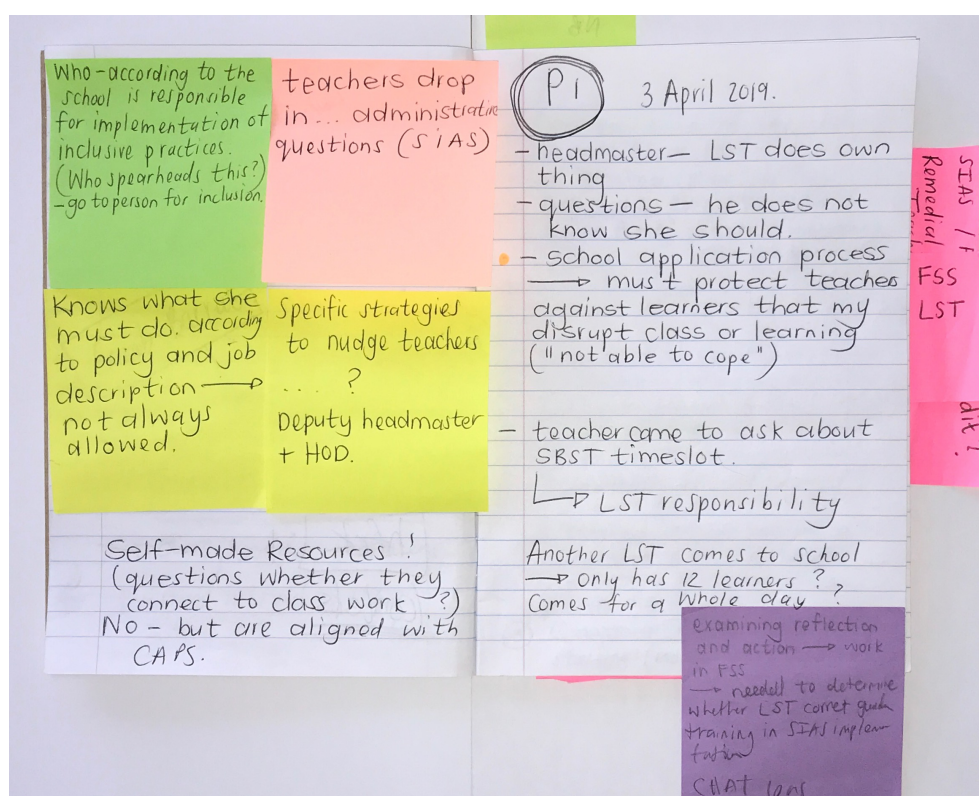 Who - according to the
school is responsible
for implementation of
inclusive practices.
(Who spearheads this?)
- go to person for inclusion.
teachers drop
in ... administrative
questions (SiAS)
Knows what she
must do. according
to policy and job
description →
not always
allowed.
Specific strategies
to nudge teachers
.... ?
Deputy headmaster
+ HOD.
Self-made Resources !
(questions whether they
connect to class work ?)
No - but are aligned with
CAPS.
P1
3 April 2019.
- headmaster - LST does own
thing
- questions - he does not
know she should.
- school application process
→ must protect teaches
against learners that my
disrupt class or learning
("not able to cope")
- teacher came to ask about
SBST timeslot.
→ LST responsibility
Another LST comes to school
→ only has 12 learners ?
Comes for a whole day ?
SIAS /
Remedial
FSS
LST
examining reflection
and action → work
in FSS
→ needed to determine
whether LST
training in SIAS implem-
tation
CHAT lens